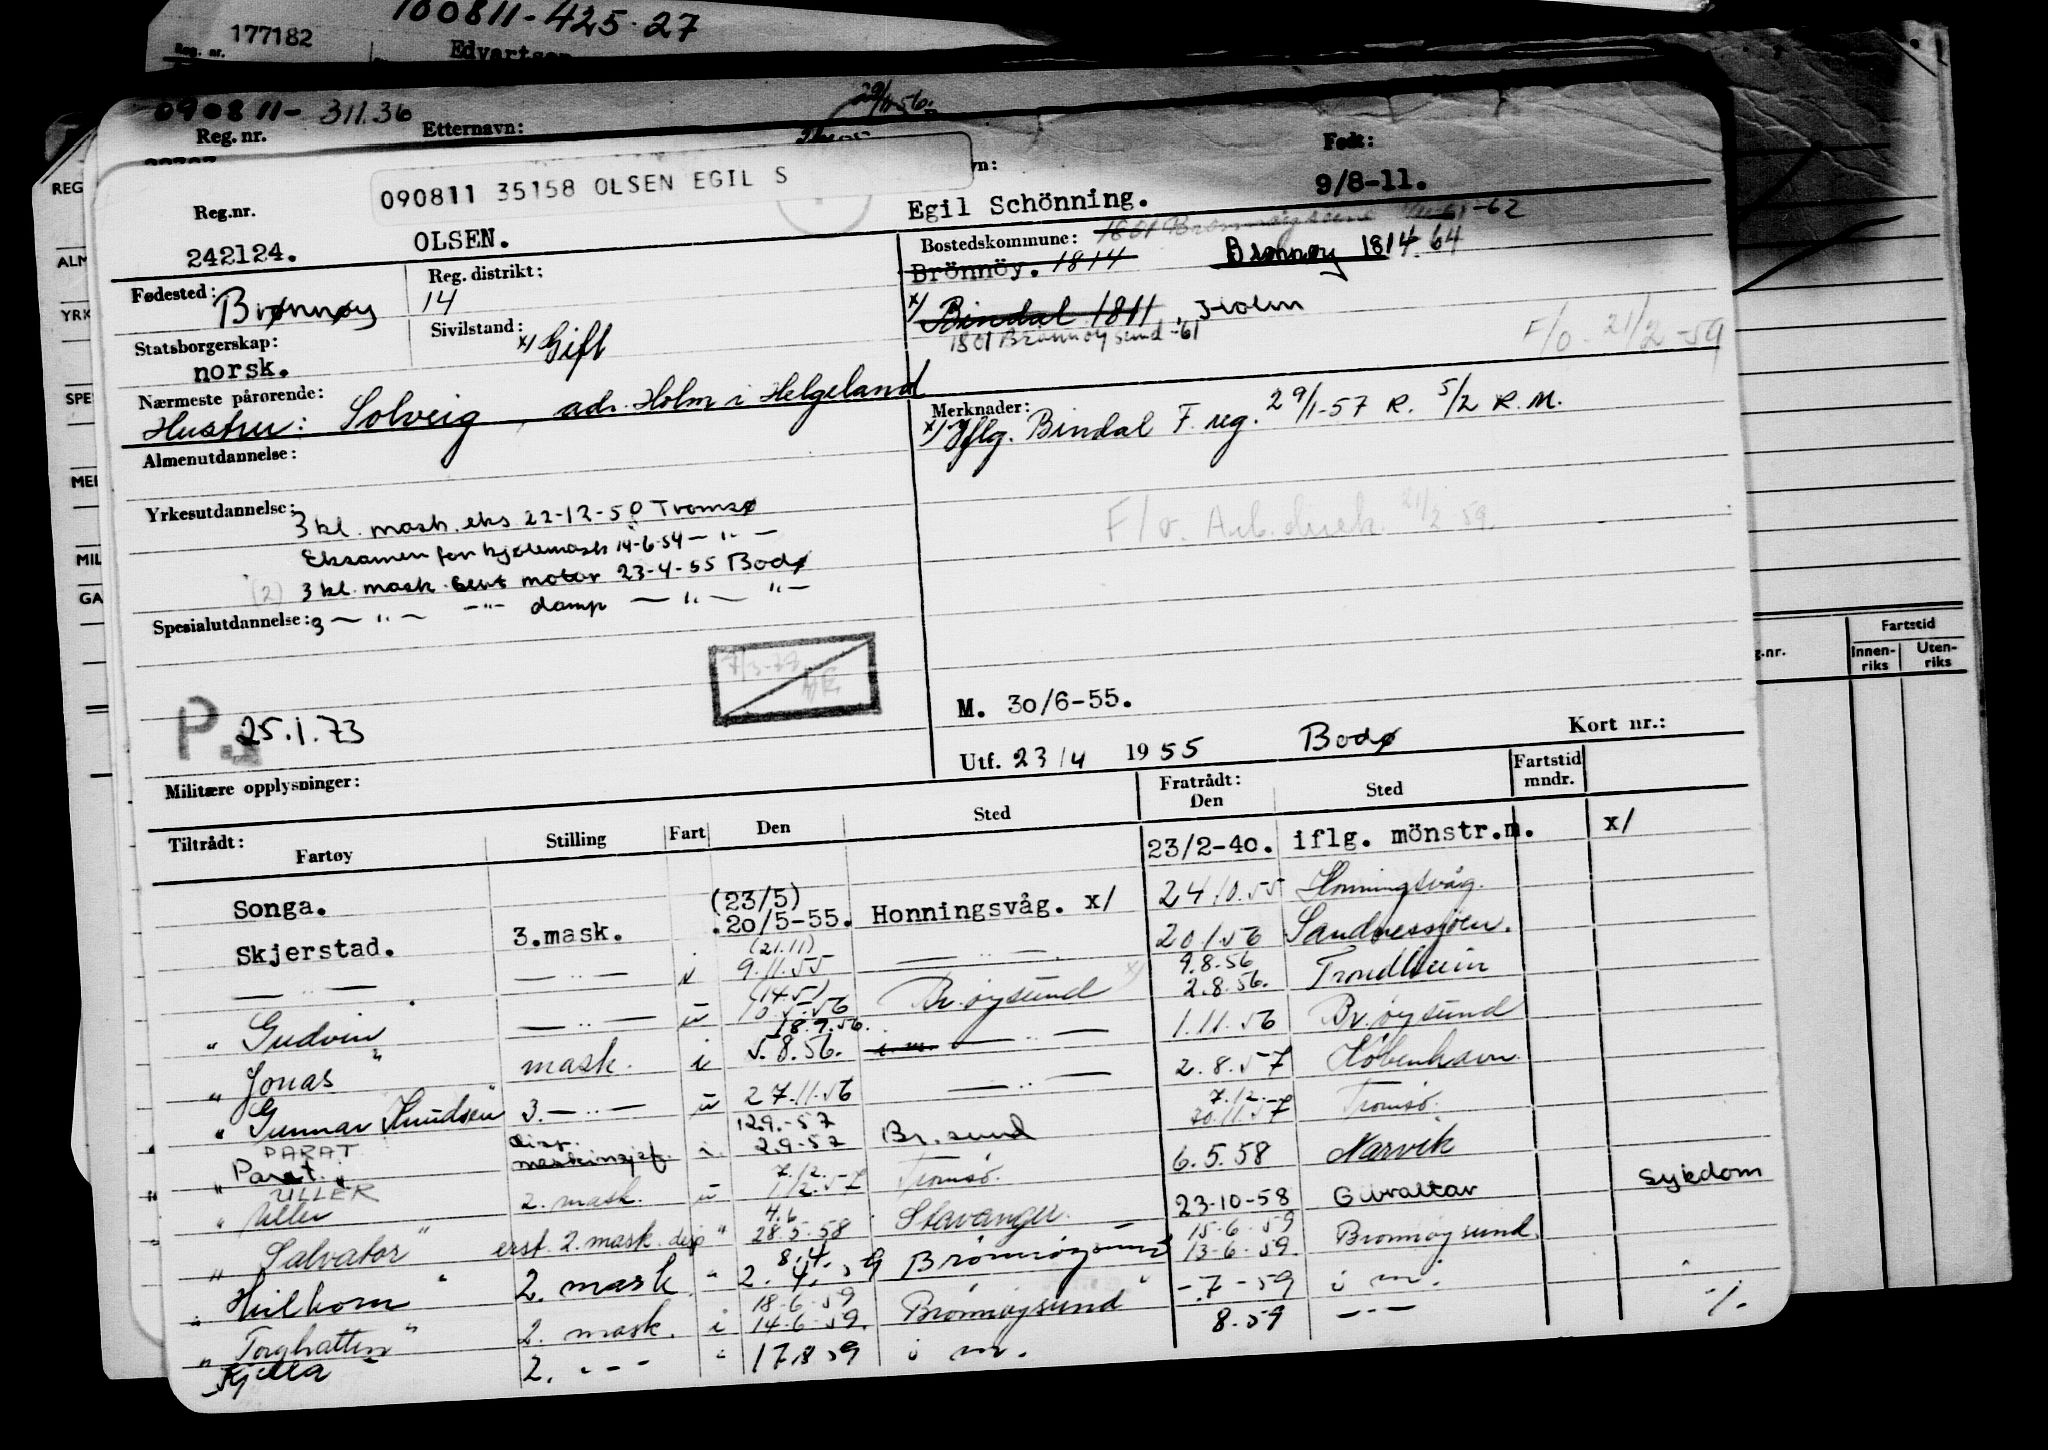 100811-425.27
177182
Reg. nr.
Edvartsen
090811-311.36
Reg. nr.
Etternavn:
Født:
090811 35158 OLSEN EGIL S
Reg.nr.
242124.
OLSEN.
Egil Schönning.
9/8-11.
Fødested:
Brønnøy
Reg. distrikt:
14
Bostedskommune:
-62
Brönnöy. 1814
Brønnøy 1814 64
Statsborgerskap:
norsk.
Sivilstand:
x/ Gift
x/ Bindal 1811, Holm
1801 Brønnøysund -61
F/o. 21/2-59
Nærmeste pårørende:
Hustru: Solveig, adr. Holm i Helgeland
Merknader:
x/ Iflg. Bindal F. reg. 29/1-57 R. 5/2 R.M.
Almenutdannelse:
Yrkesutdannelse:
3 kl. mask. eks 22-12-50 Tromsø
Eksamen for kjølemask 14-6-54 — " —
(2) 3 kl. mask. sert motor 23-4-55 Bodø
Spesialutdannelse:
3 — " — — " — damp — " — " —
F/o. Arb.direk. 21/2 59.
P. 25.1.73
M. 30/6-55.
Utf. 23/4 1955 Bodø
Kort nr.:
Militære opplysninger:
Tiltrådt:
Fartøy
Stilling
Fart
Den
Sted
Fratrådt:
Den
Sted
Fartstid
mndr.
Songa.
23/2-40. iflg. mönstr.m. x/
Skjerstad. 3.mask. (23/5) .20/5-55. Honningsvåg. x/ 24.10.55 Honningsvåg.
— " — — " — (21.11) 9.11.55 — " — 20.1.56 Sandnessjøen.
" Gudvin " — " — ü (14.5) Br.øysund 9.8.56 2.8.56. Trondheim
" Jonas mask. i 18.9.56. 5.8.56. — " — 1.11.56 Br.øysund
" Gunnar Knudsen " 3. — " — ü 27.11.56 — " — 2.8.57 København
PARAT
" Parat " disp. maskinsjef. i. 12.9.-57 2.9-57 Br.sund 7.12.- 30.11.57 Tromsø.
ULLER
" Uller 2. mask. ü 7.12. 1/12.57 Tromsø. 6.5.58 Narvik
" Salvator " erst. 2. mask. disp " 4.6 28.5.58 Stavanger. 23-10-58 Gibraltar Sykdom
" Heilhorn " 2. mask. " 8.4. 2. 4. 59 Brønnøysund 15-6-59 13-6-59. Brønnøysund.
" Torghatten " 2. mask. i 18-6-59 14-6-59. Brønnøysund -.7-59 i m.
Kjella 2. - - - " 17.8 59 i m. 8.59 — " —
REG
ALM
YRK
SPE
MIL
GA
Fartstid
Innen-
riks
Uten-
riks